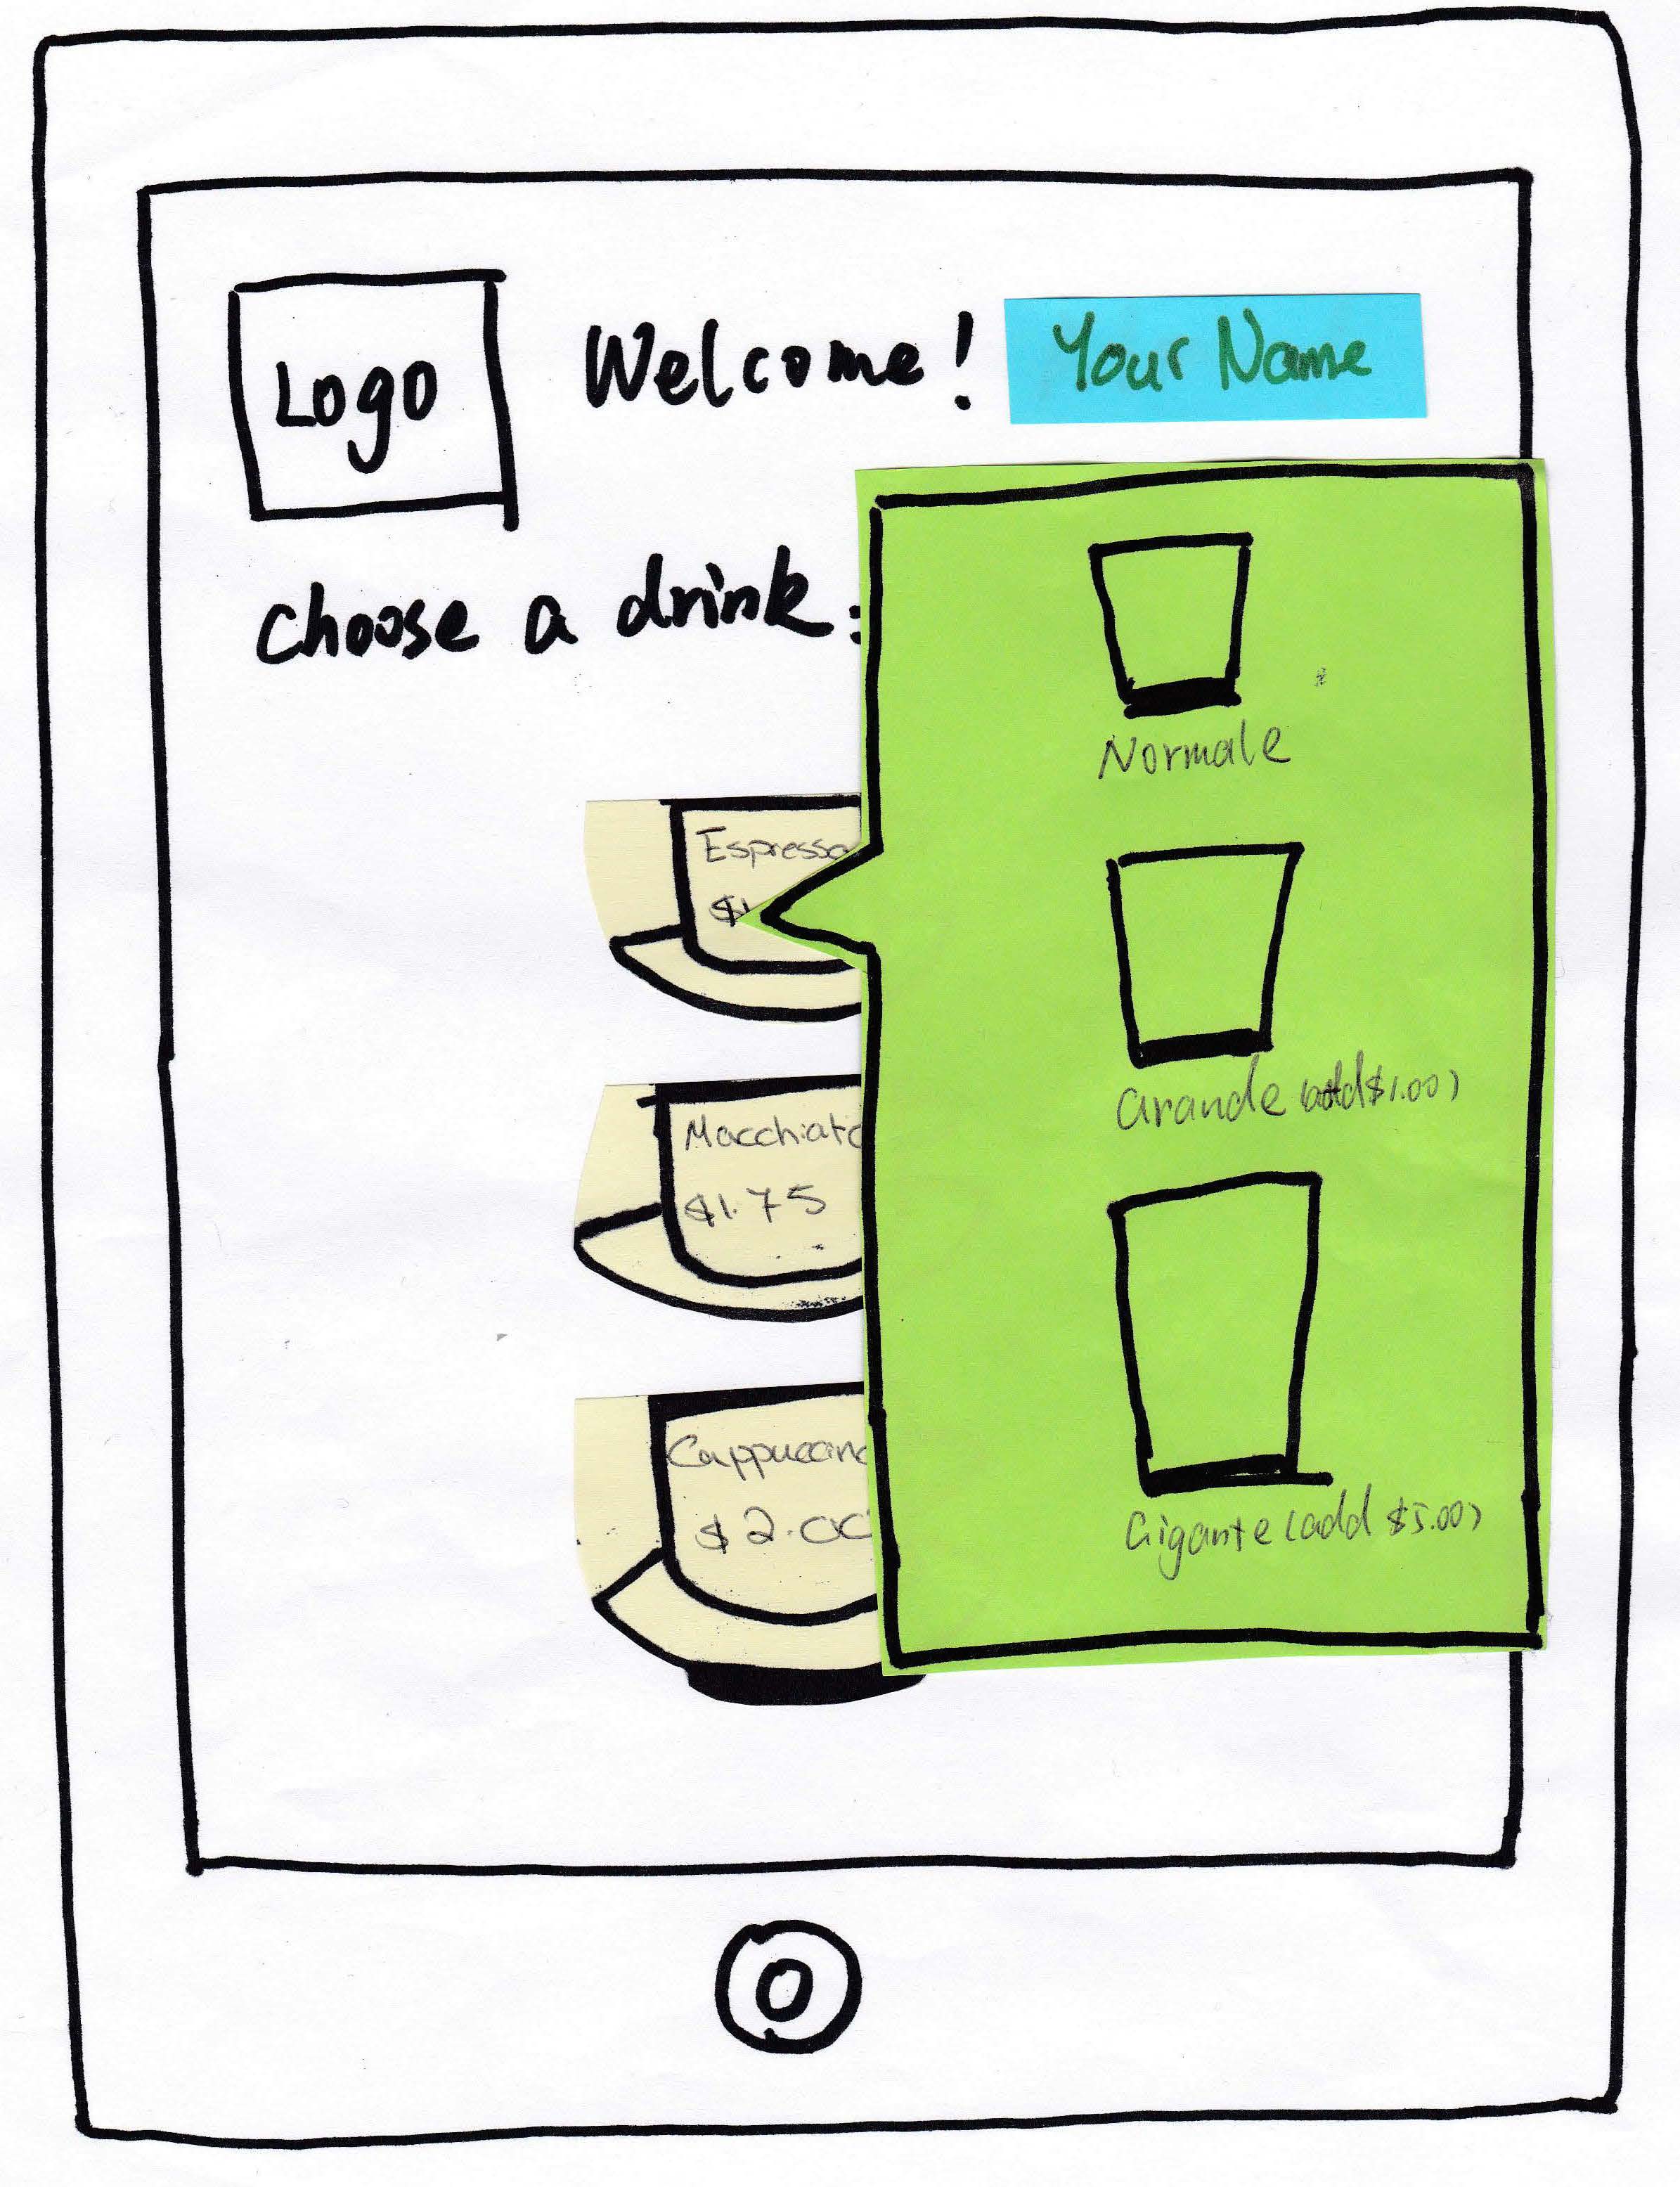 Logo
Welcome!
Your Name
choose a drink:
Espresso
$1
Macchiato
$1.75
Cappuccino
$2.00
Normale
Grande (add $1.00)
Gigante (add $5.00)